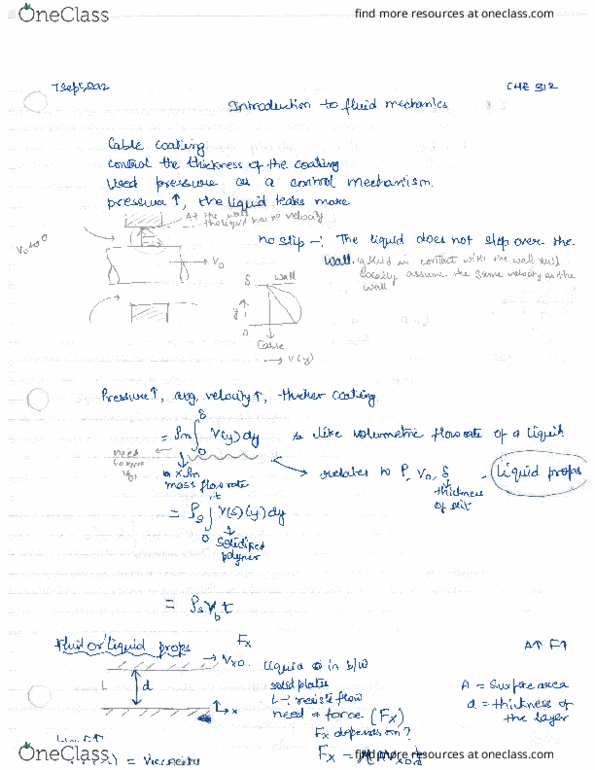 OneClass
find more resources at oneclass.com
7 Sept, 2012
CHE 312
Introduction to fluid mechanics
Cable coating
control the thickness of the coating
Used pressure as a control mechanism.
pressure ↑, the liquid leaks more
At the wall
the liquid has no velocity
no slip → The liquid does not slip over the
wall.
fluid in contact with the wall will
locally assume the same velocity as the
wall
V₀
δ
wall
y
0
Cable
→ V(y)
Pressure ↑, avg. velocity ↑, thicker coating
= ρm ∫ V(y) dy
δ
0
like volumetric flow rate of a liquid
need
mass flow rate
relates to P, V₀, δ
Liquid props
thickness
of slit
= ρs ∫ V(s)(y) dy
t
0
solidified
polymer
= ρs Vb t
Fluid or liquid props
Fx
→ Vx0
L
d
x
liquid in b/w
solid plates
L → resists flow
need a force (Fx)
Fx depends on?
A↑ F↑
A = Surface area
d = thickness of
the layer
= Viscosity
OneClass
find more resources at oneclass.com